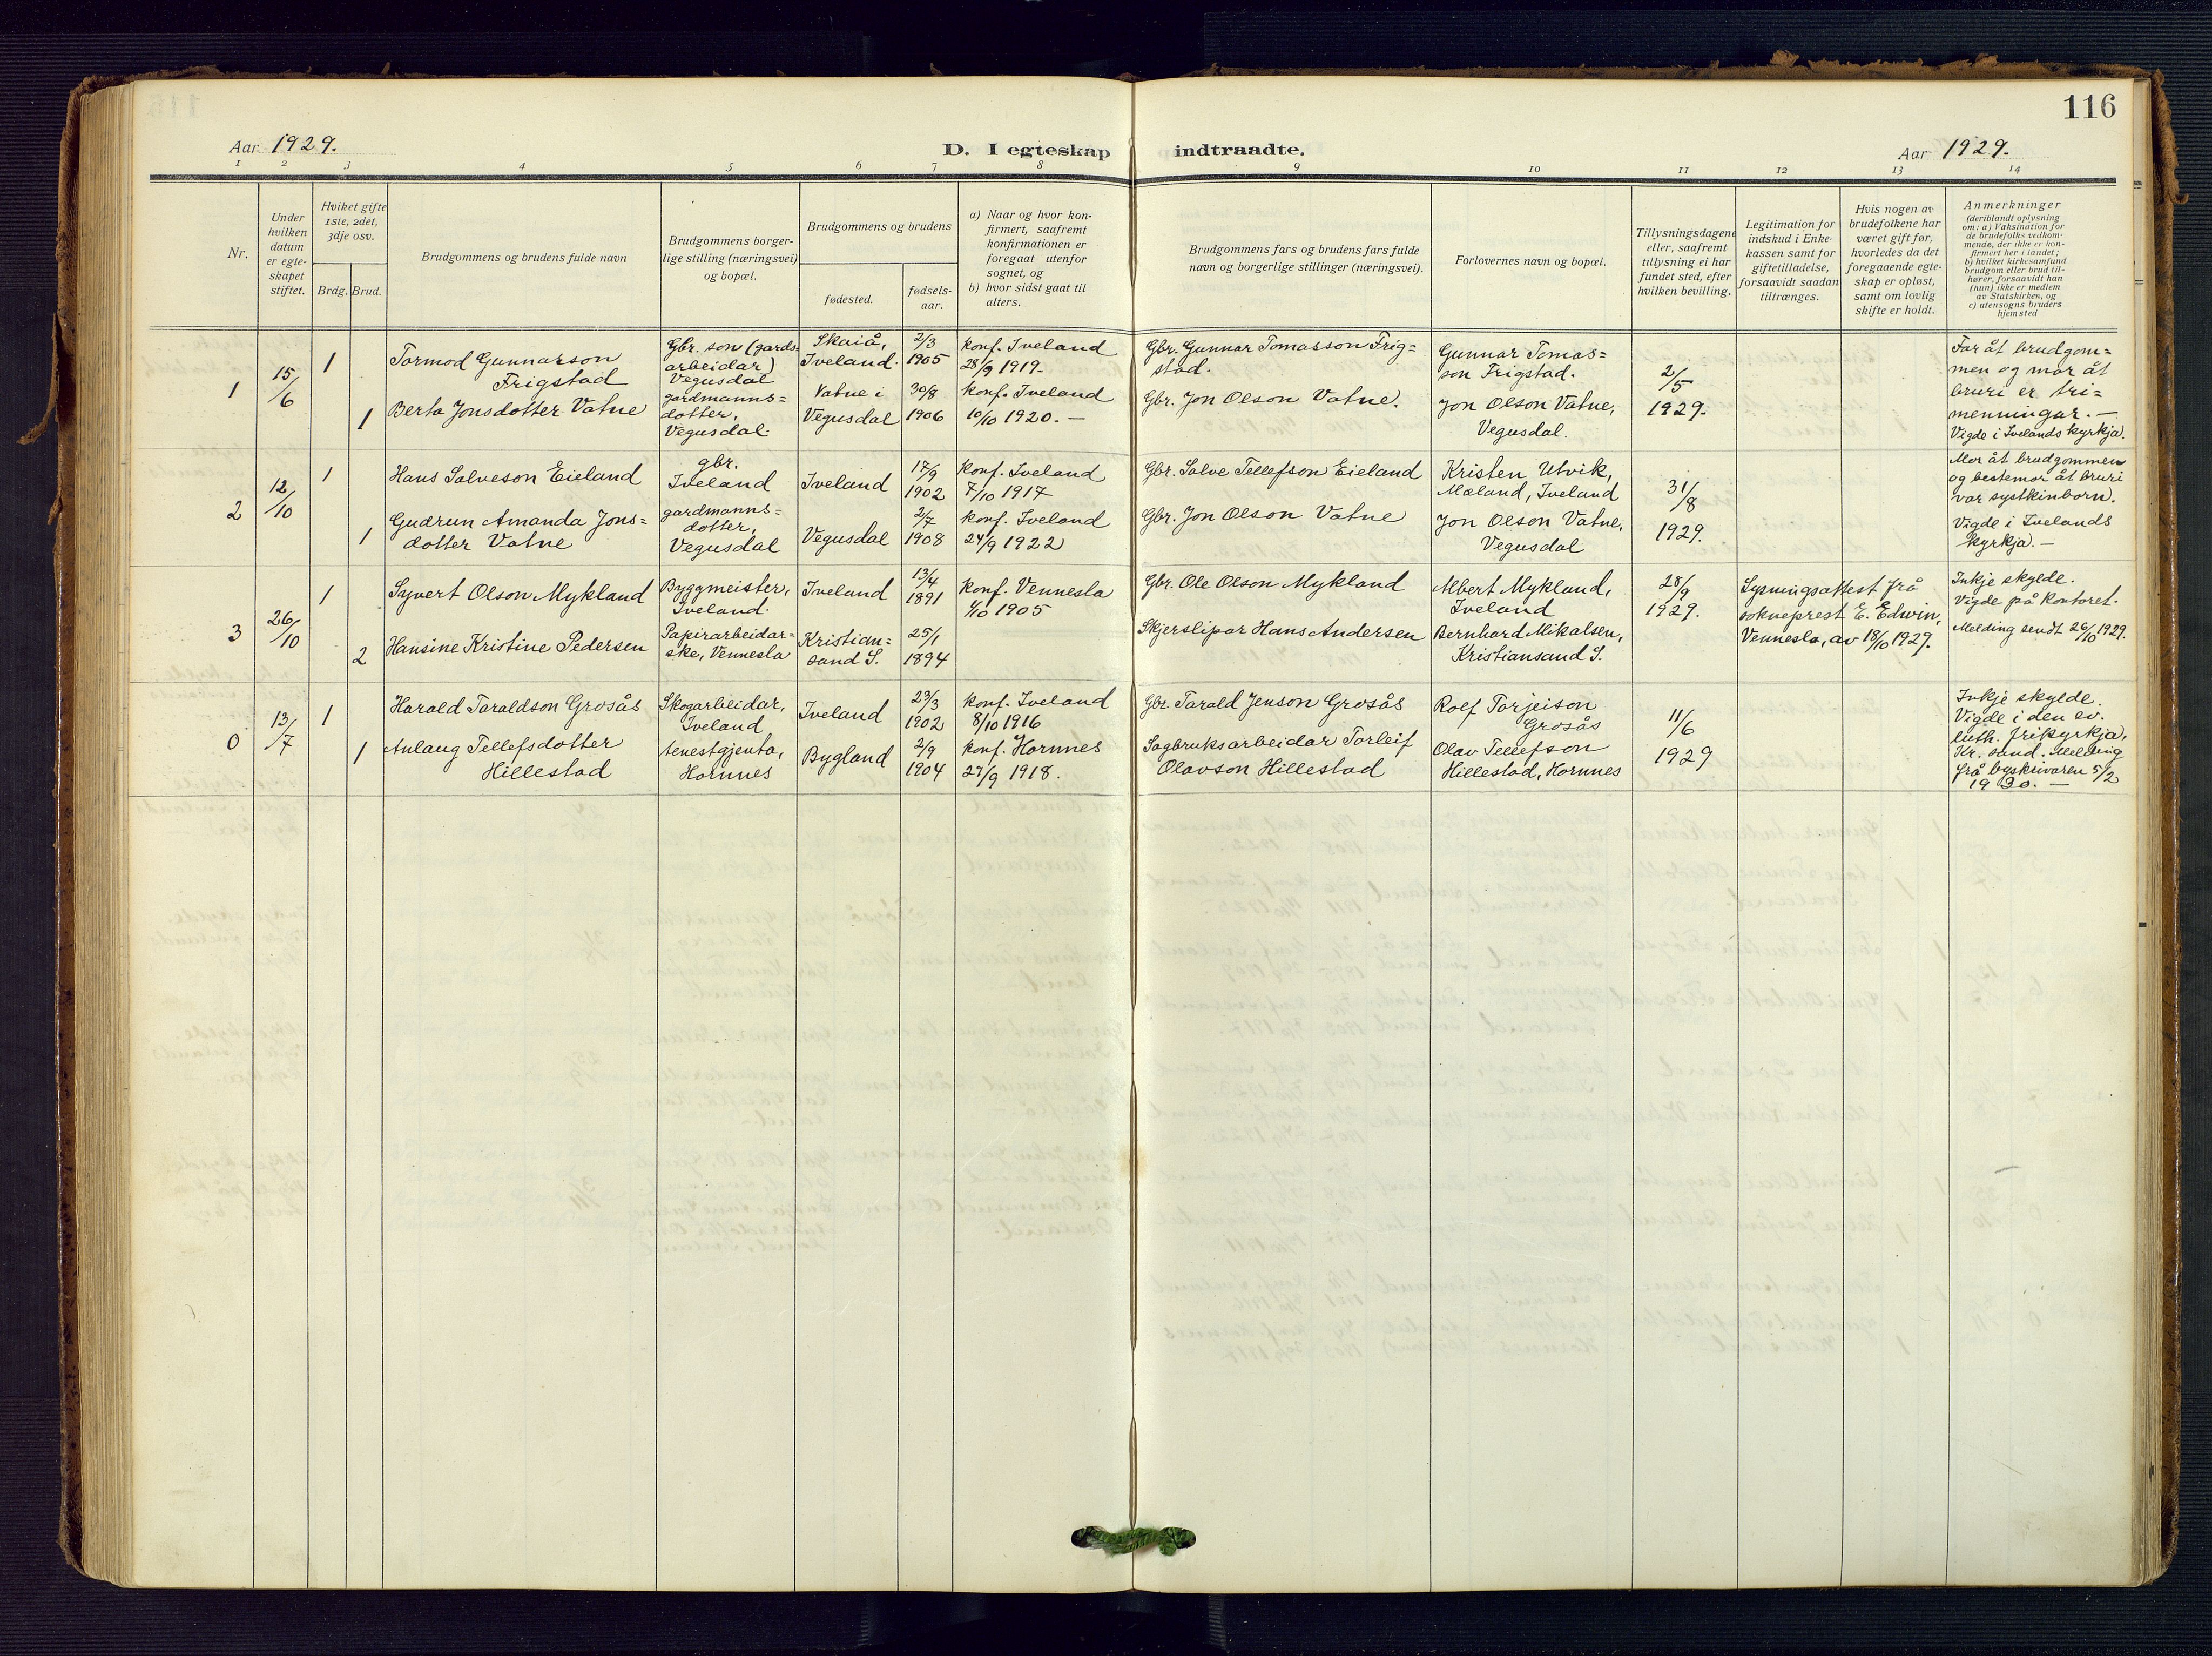 116
Aar 1929.
D. I egteskap indtraadte.
Aar 1929.
1 2 3 4 5 6 7 8 9 10 11 12 13 14
Nr.
Under
hvilken
datum
er egte-
skapet
stiftet.
Hvilket gifte
1ste, 2det,
3dje osv.
Brdg. Brud.
Brudgommens og brudens fulde navn
Brudgommens borger-
lige stilling (næringsvei)
og bopæl.
Brudgommens og brudens
fødested.
fødsels-
aar.
a) Naar og hvor kon-
firmert, saafremt
konfirmationen er
foregaat utenfor
sognet, og
b) hvor sidst gaat til
alters.
Brudgommens fars og brudens fars fulde
navn og borgerlige stillinger (næringsvei).
Forlovernes navn og bopæl.
Tillysningsdagene
eller, saafremt
tillysning ei har
fundet sted, efter
hvilken bevilling.
Legitimation for
indskud i Enke-
kassen samt for
giftetilladelse,
forsaavidt saadan
tiltrænges.
Hvis nogen av
brudefolkene har
været gift før,
hvorledes da det
foregaaende egte-
skap er opløst,
samt om lovlig
skifte er holdt.
Anmerkninger
(deriblandt oplysning
om: a) Vaksination for
de brudefolks vedkom-
mende, der ikke er kon-
firmert her i landet;
b) hvilket kirkesamfund
brudgom eller brud til-
hører, forsaavidt han
(hun) ikke er medlem
av Statskirken, og
c) utensogns bruders
hjemsted
1
15/6
1
Tormod Gunnarson
Frigstad
Gbr. son (gards-
arbeidar)
Vegusdal
Skaiå,
Iveland.
2/3
1905
konf. Iveland
28/9 1919.
Gbr. Gunnar Tomasson Frig=
stad.
Gunnar Tomas=
son Frigstad.
2/5
1929.
Far åt brudgom=
men og mor åt
bruri er tri=
menningar. —
Vigde i Ivelands kyrkja.
1
Berta Jonsdotter Vatne
gardmanns=
dotter,
Vegusdal.
Vatne i
Vegusdal
30/8
1906
konf. Iveland
10/10 1920. —
Gbr. Jon Olson Vatne.
Jon Olson Vatne,
Vegusdal.
2
12/10
1
Hans Salveson Eieland
gbr.
Iveland
Iveland
17/9
1902
konf. Iveland
7/10 1917
Gbr. Salve Tellefson Eieland
Kristen Utvik,
Mæland, Iveland
31/8
1929.
Mor åt brudgommen
og bestemor åt bruri
var systkinborn.
Vigde i Ivelands
kyrkja. —
1
Gudrun Amanda Jons=
dotter Vatne
gardmanns=
dotter,
Vegusdal
Vegusdal
2/7
1908
konf. Iveland
24/9 1922
Gbr. Jon Olson Vatne
Jon Olson Vatne,
Vegusdal
3
26/10
1
Syvert Olson Mykland
Byggmeister,
Iveland.
Iveland
13/4
1891
konf. Vennesla
1/10 1905
Gbr. Ole Olson Mykland
Albert Mykland,
Iveland
28/9
1929.
Lysningsattest frå
sokneprest E. Edwin,
Vennesla, av 18/10 1929.
Inkje skylde.
Vigde på kontoret.
Melding sendt 26/10 1929.
2
Hansine Kristine Pedersen
Papirarbeidar=
ske, Vennesla
Kristian=
sand S.
25/1
1894
Skjerslipar Hans Andersen
Bernhard Mikalsen,
Kristiansand S.
0
13/7
1
Harald Taraldson Grosås
Skogarbeidar,
Iveland
Iveland
23/3
1902
konf. Iveland
8/10 1916
Gbr. Tarald Jenson Grosås
Rolf Torjeison
Grosås
11/6
1929
Inkje skylde.
Vigde i den ev.
luth. frikyrkja,
Kr. sand. Melding
frå byskrivaren 5/2
1930. —
1
Anlaug Tellefsdotter
Hillestad
tenestgjenta,
Hornnes
Bygland
2/9
1904
konf. Hornnes
29/9 1918.
Sagbruksarbeidar Torleif
Olavson Hillestad
Olav Tellefson
Hillestad, Hornnes